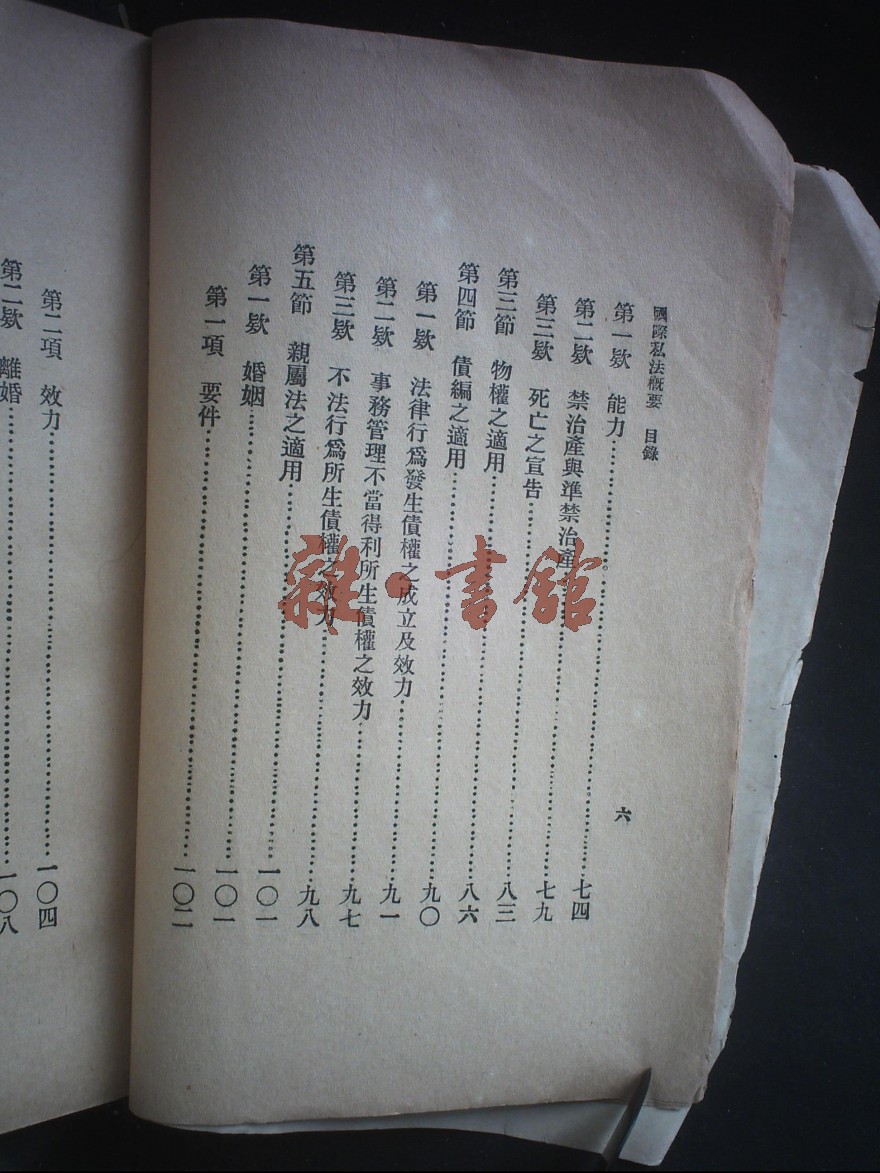 國際私法概要 目錄 六
第一欵 能力……七四
第二欵 禁治產與準禁治產……七九
第三欵 死亡之宣告……八三
第三節 物權之適用……八六
第四節 債編之適用……九〇
第一欵 法律行爲發生債權之成立及效力……九一
第二欵 事務管理不當得利所生債權之效力……九七
第三欵 不法行爲所生債權之效力……九八
第五節 親屬法之適用……一〇一
第一欵 婚姻……一〇一
第一項 要件……一〇二
第二項 效力……一〇四
第二欵 離婚……一〇八
雜·書館